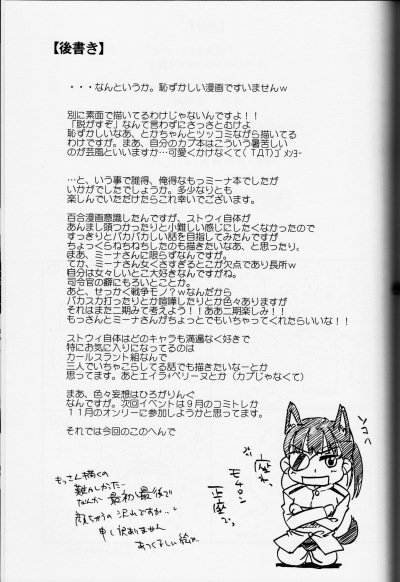 【後書き】
・・・なんというか。恥ずかしい漫画ですいませんw
別に素面で描いてるわけじゃないんですよ!!
「脱がすぞ」なんて言わずにさっさとむけよ
恥ずかしいなあ、とかちゃんとツッコミながら描いてる
わけですが。まあ、自分のカプ本はこういう暑苦しい
のが芸風といいますか…可愛くかけなくて(TДT)ゴメンヨー
…と、いう事で誰得、俺得なもっミーナ本でしたが
いかがでしたでしょうか。多少なりとも
楽しんでいただけたらこれ幸いでございます。
百合漫画意識したんですが、ストウィ自体が
あんまし頭つかったり小難しい感じにしたくなかったので
すっきりとバカバカしい話を目指してみたんですが
ちょっくらねちねちしたのも描きたいなあ、と思ったり。
まあ、ミーナさんに限らずなんですが。
てか、ミーナさん女くさすぎるとこが欠点であり長所w
自分は女々しいとこ大好きなんですがね。
司令官の癖にもろいとことか。
あと、せっかく戦争モノ?wなんだから
バカスカ打ったりとか喧嘩したりとか色々ありますが
それはまた二期みて考えよう!!ああ二期楽しみ!!
もっさんとミーナさんがちょっとでもいちゃってくれたらいいな!!
ストウィ自体はどのキャラも満遍なく好きで
特にお気に入りになってるのは
カールスラント組なんで
三人でいちゃこらしてる話でも描きたいなーとか
思ってます。あとエイラ+ペリーヌとか(カプじゃなくて)
まあ、色々妄想はひろがりんぐ
なんですが。次回イベントは9月のコミトレか
11月のオンリーに参加しようかと思ってます。
それでは今回このへんで
もっさん描くの
難しかった…
なんか最初と最後で
申し訳ありません
ソコへ
座れ、
正座で。